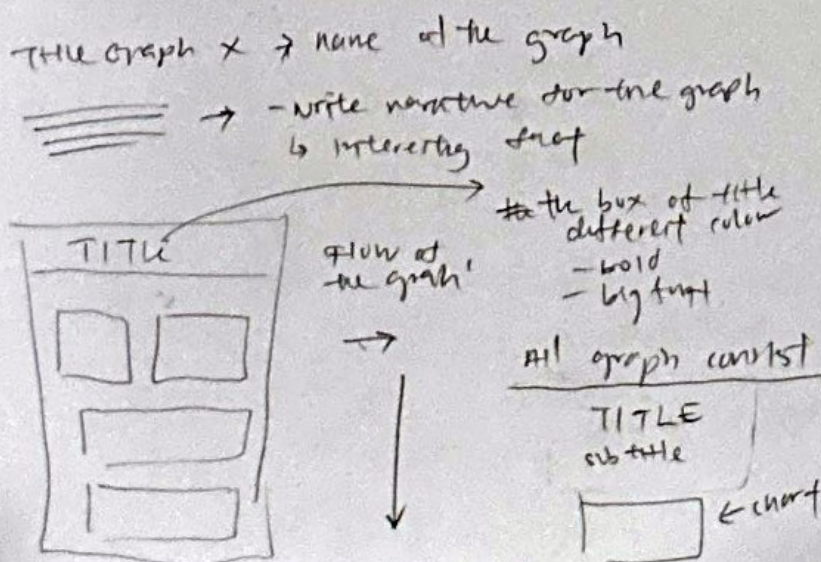 Title Graph X → name of the graph
→ - write narrative for the graph
↳ interesting fact
the box of title
different colour
- bold
- big font
TITLE
Flow of
the graph
→
All graph consist
TITLE
sub title
← chart